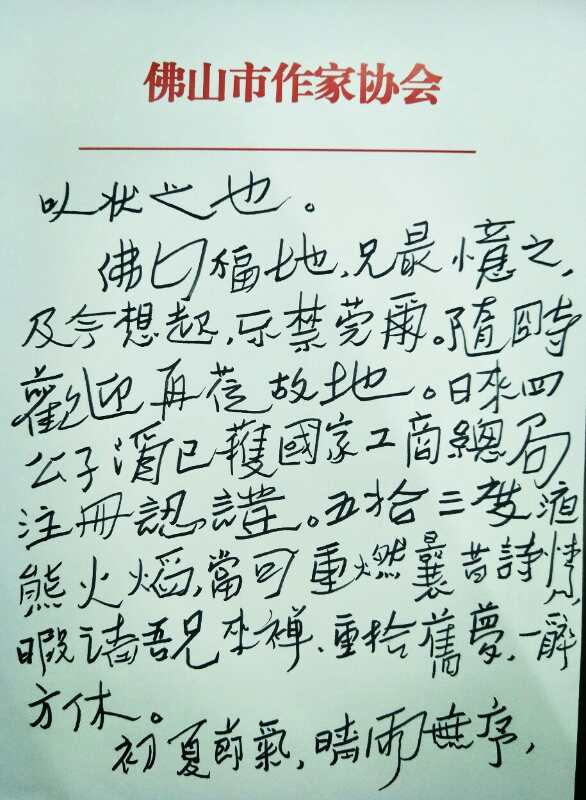 佛山市作家协会
以状之也。
佛山福地,兄最憶之,
及今想起,不禁莞爾。隨時
歡迎再蒞故地。日來四
公子酒已獲國家工商總局
注冊認證。五拾三度酒
熊火焰,當可重燃曩昔詩情,
暇請吾兄來禅、重拾舊夢,一醉
方休。
初夏節氣,晴雨無序,